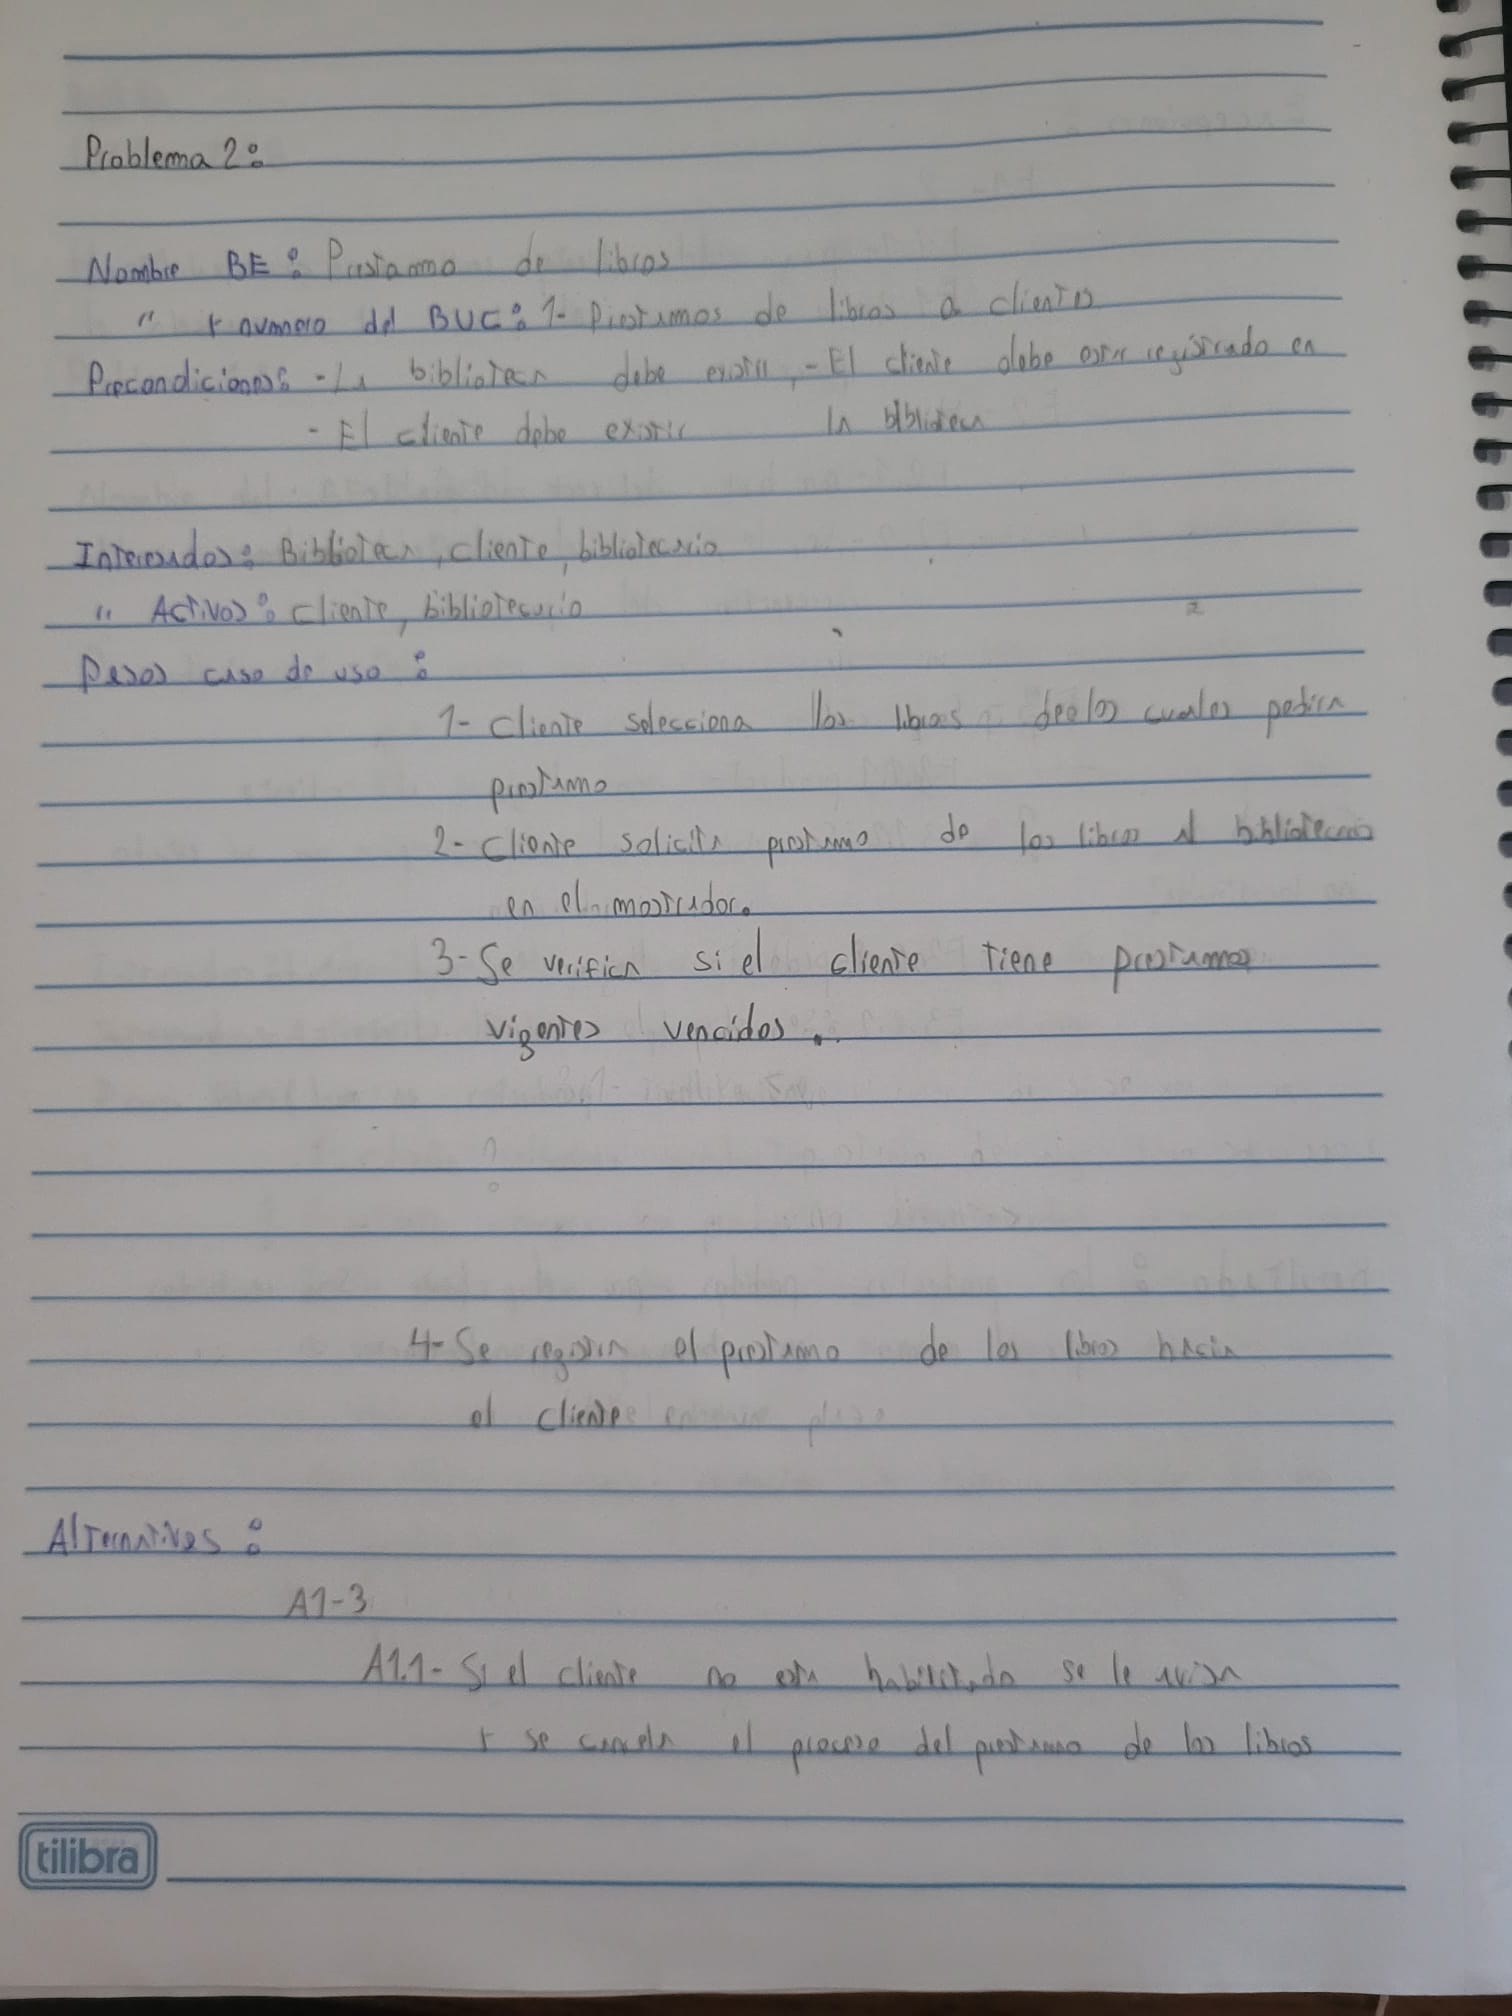 Problema 2:
Nombre BE: Prestamo de libros
" + numero del BUC: 1- Prestamos de libros a clientes
Precondiciones: - La biblioteca debe existir, - El cliente debe estar registrado en
- El cliente debe existir la biblioteca
Interesados: Biblioteca, cliente, bibliotecario
" Activos: cliente, bibliotecario
Pasos caso de uso:
1- Cliente selecciona los libros de los cuales pedira
prestamo
2- Cliente solicita prestamo de los libros al bibliotecario
en el mostrador.
3- Se verifica si el cliente tiene prestamos
vigentes vencidos.
4- Se registra el prestamo de los libros hacia
el cliente
Alternativas:
A1-3
A1.1- Si el cliente no esta habilitado se le avisa
+ se cancela el proceso del prestamo de los libros
tilibra